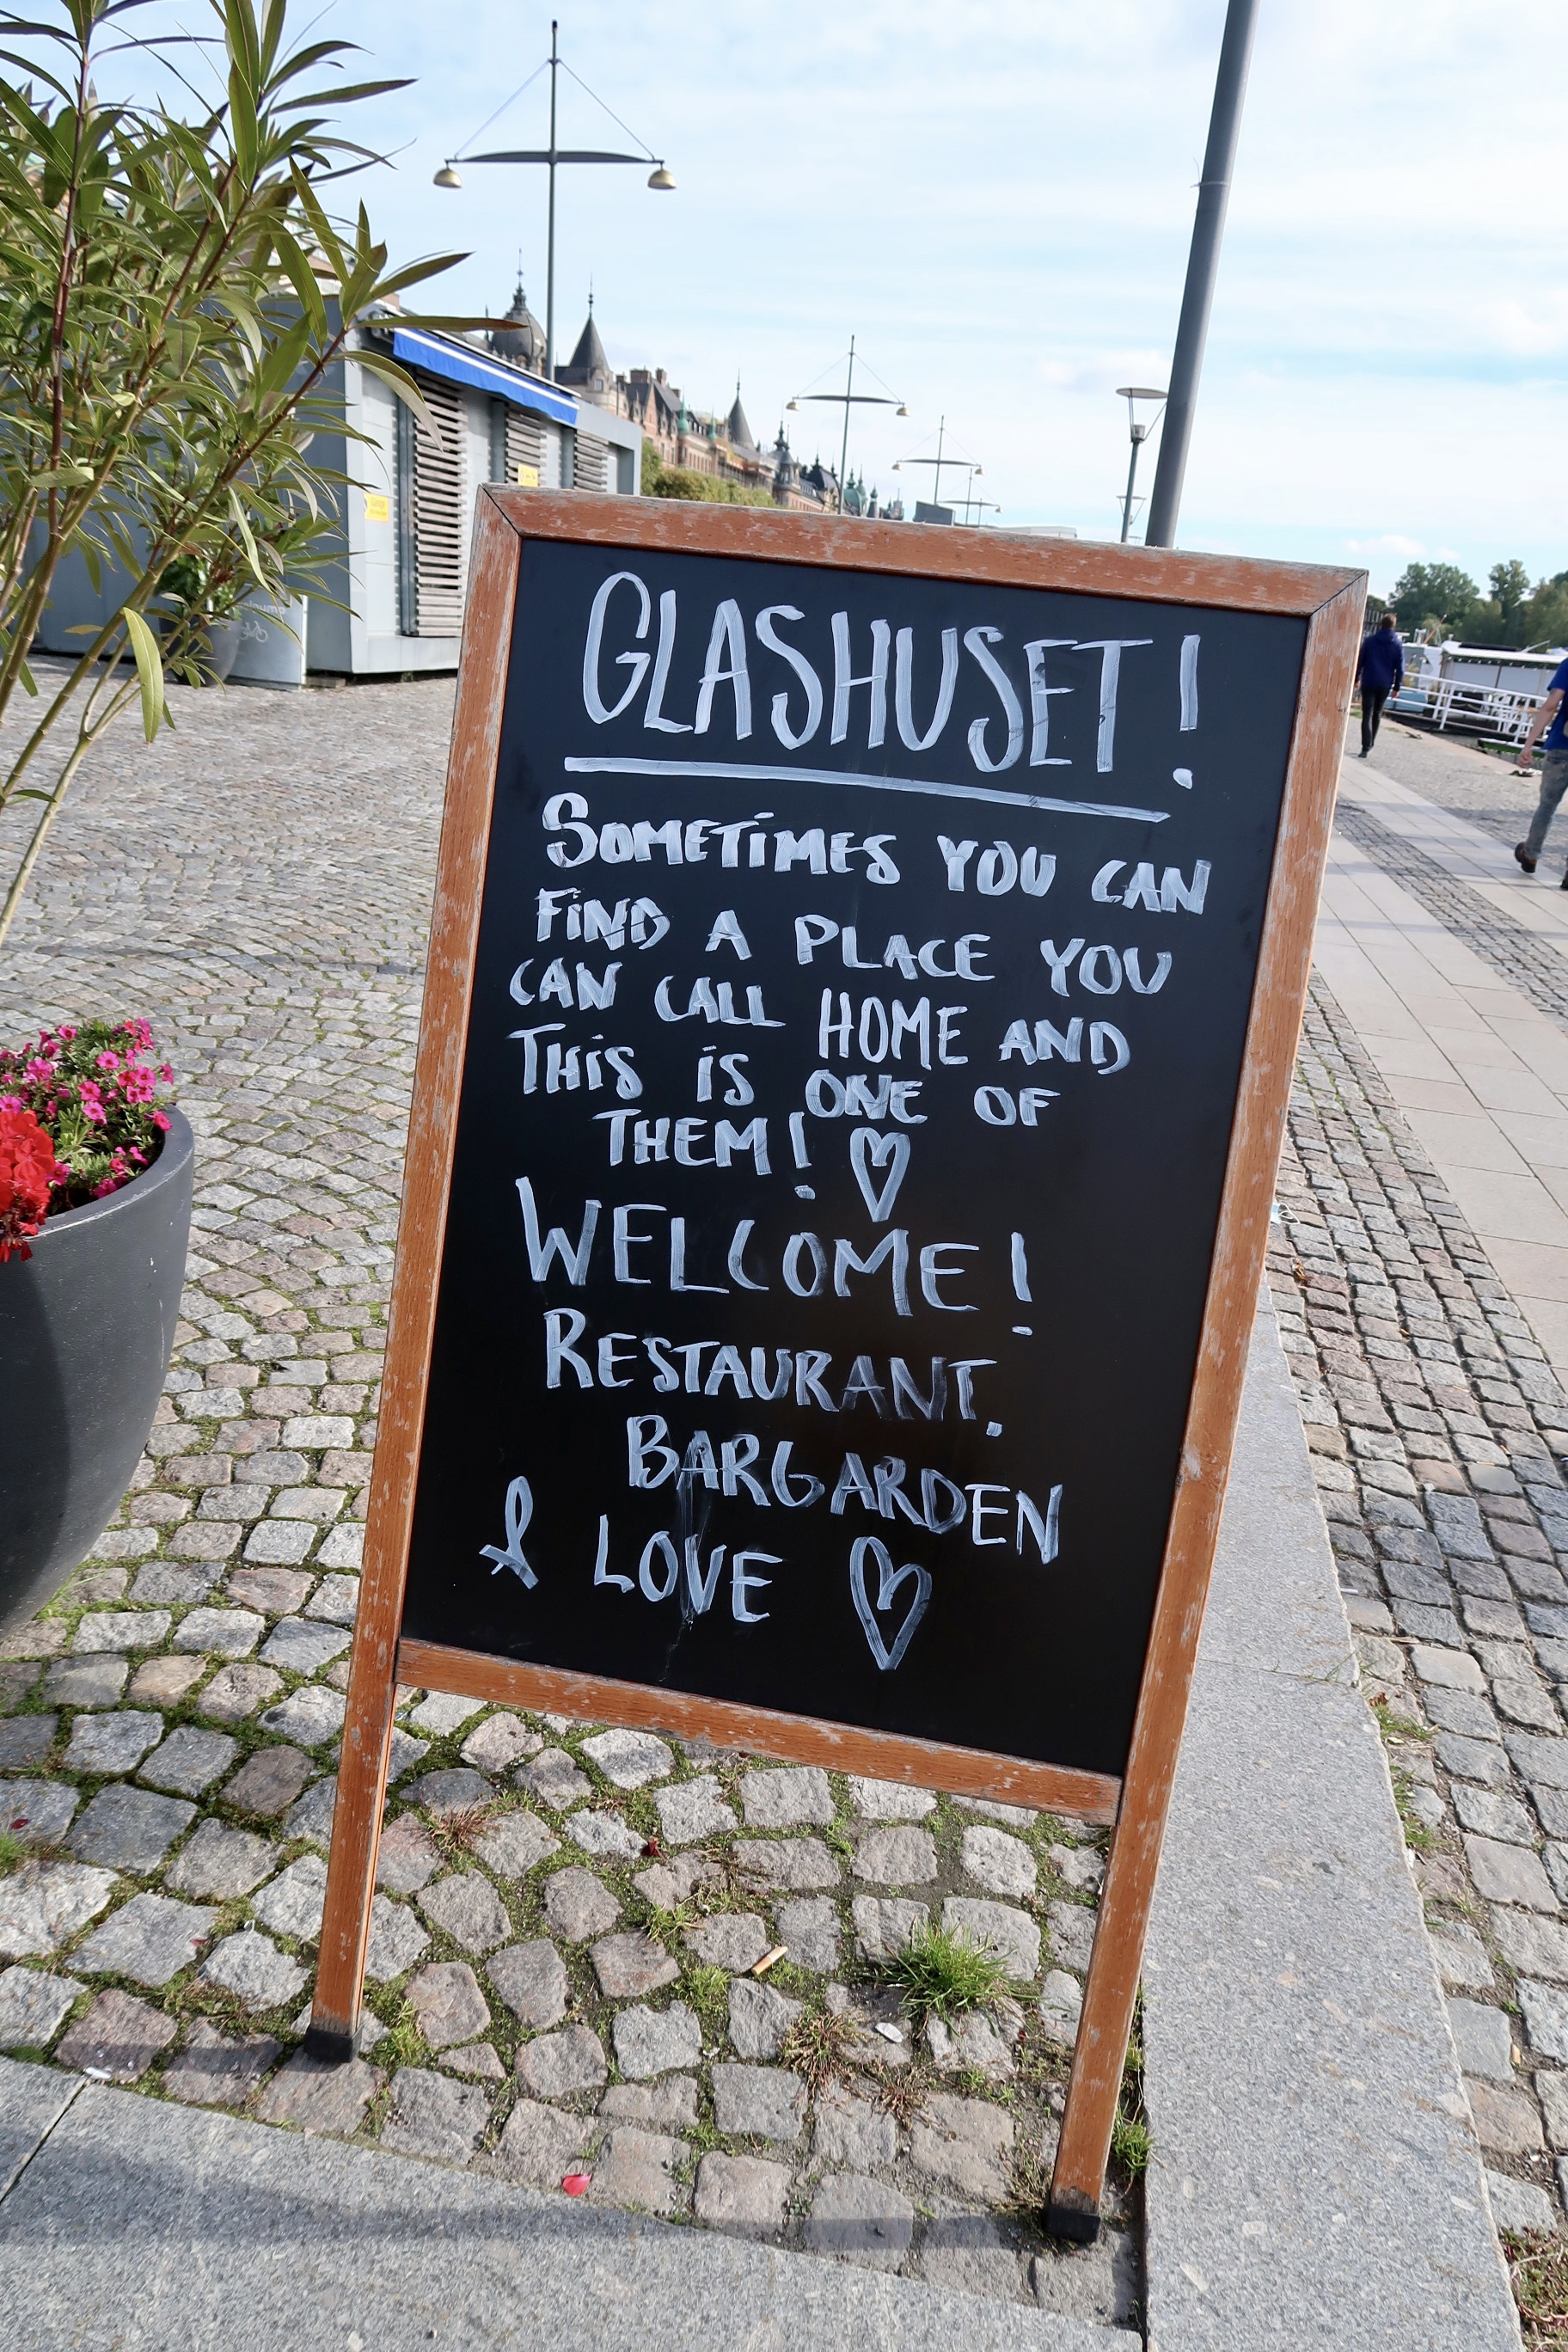 GLASHUSET!
SOMETIMES YOU CAN
FIND A PLACE YOU
CAN CALL HOME AND
THIS IS ONE OF
THEM! ♡
WELCOME!
RESTAURANT.
BARGARDEN
& LOVE ♡